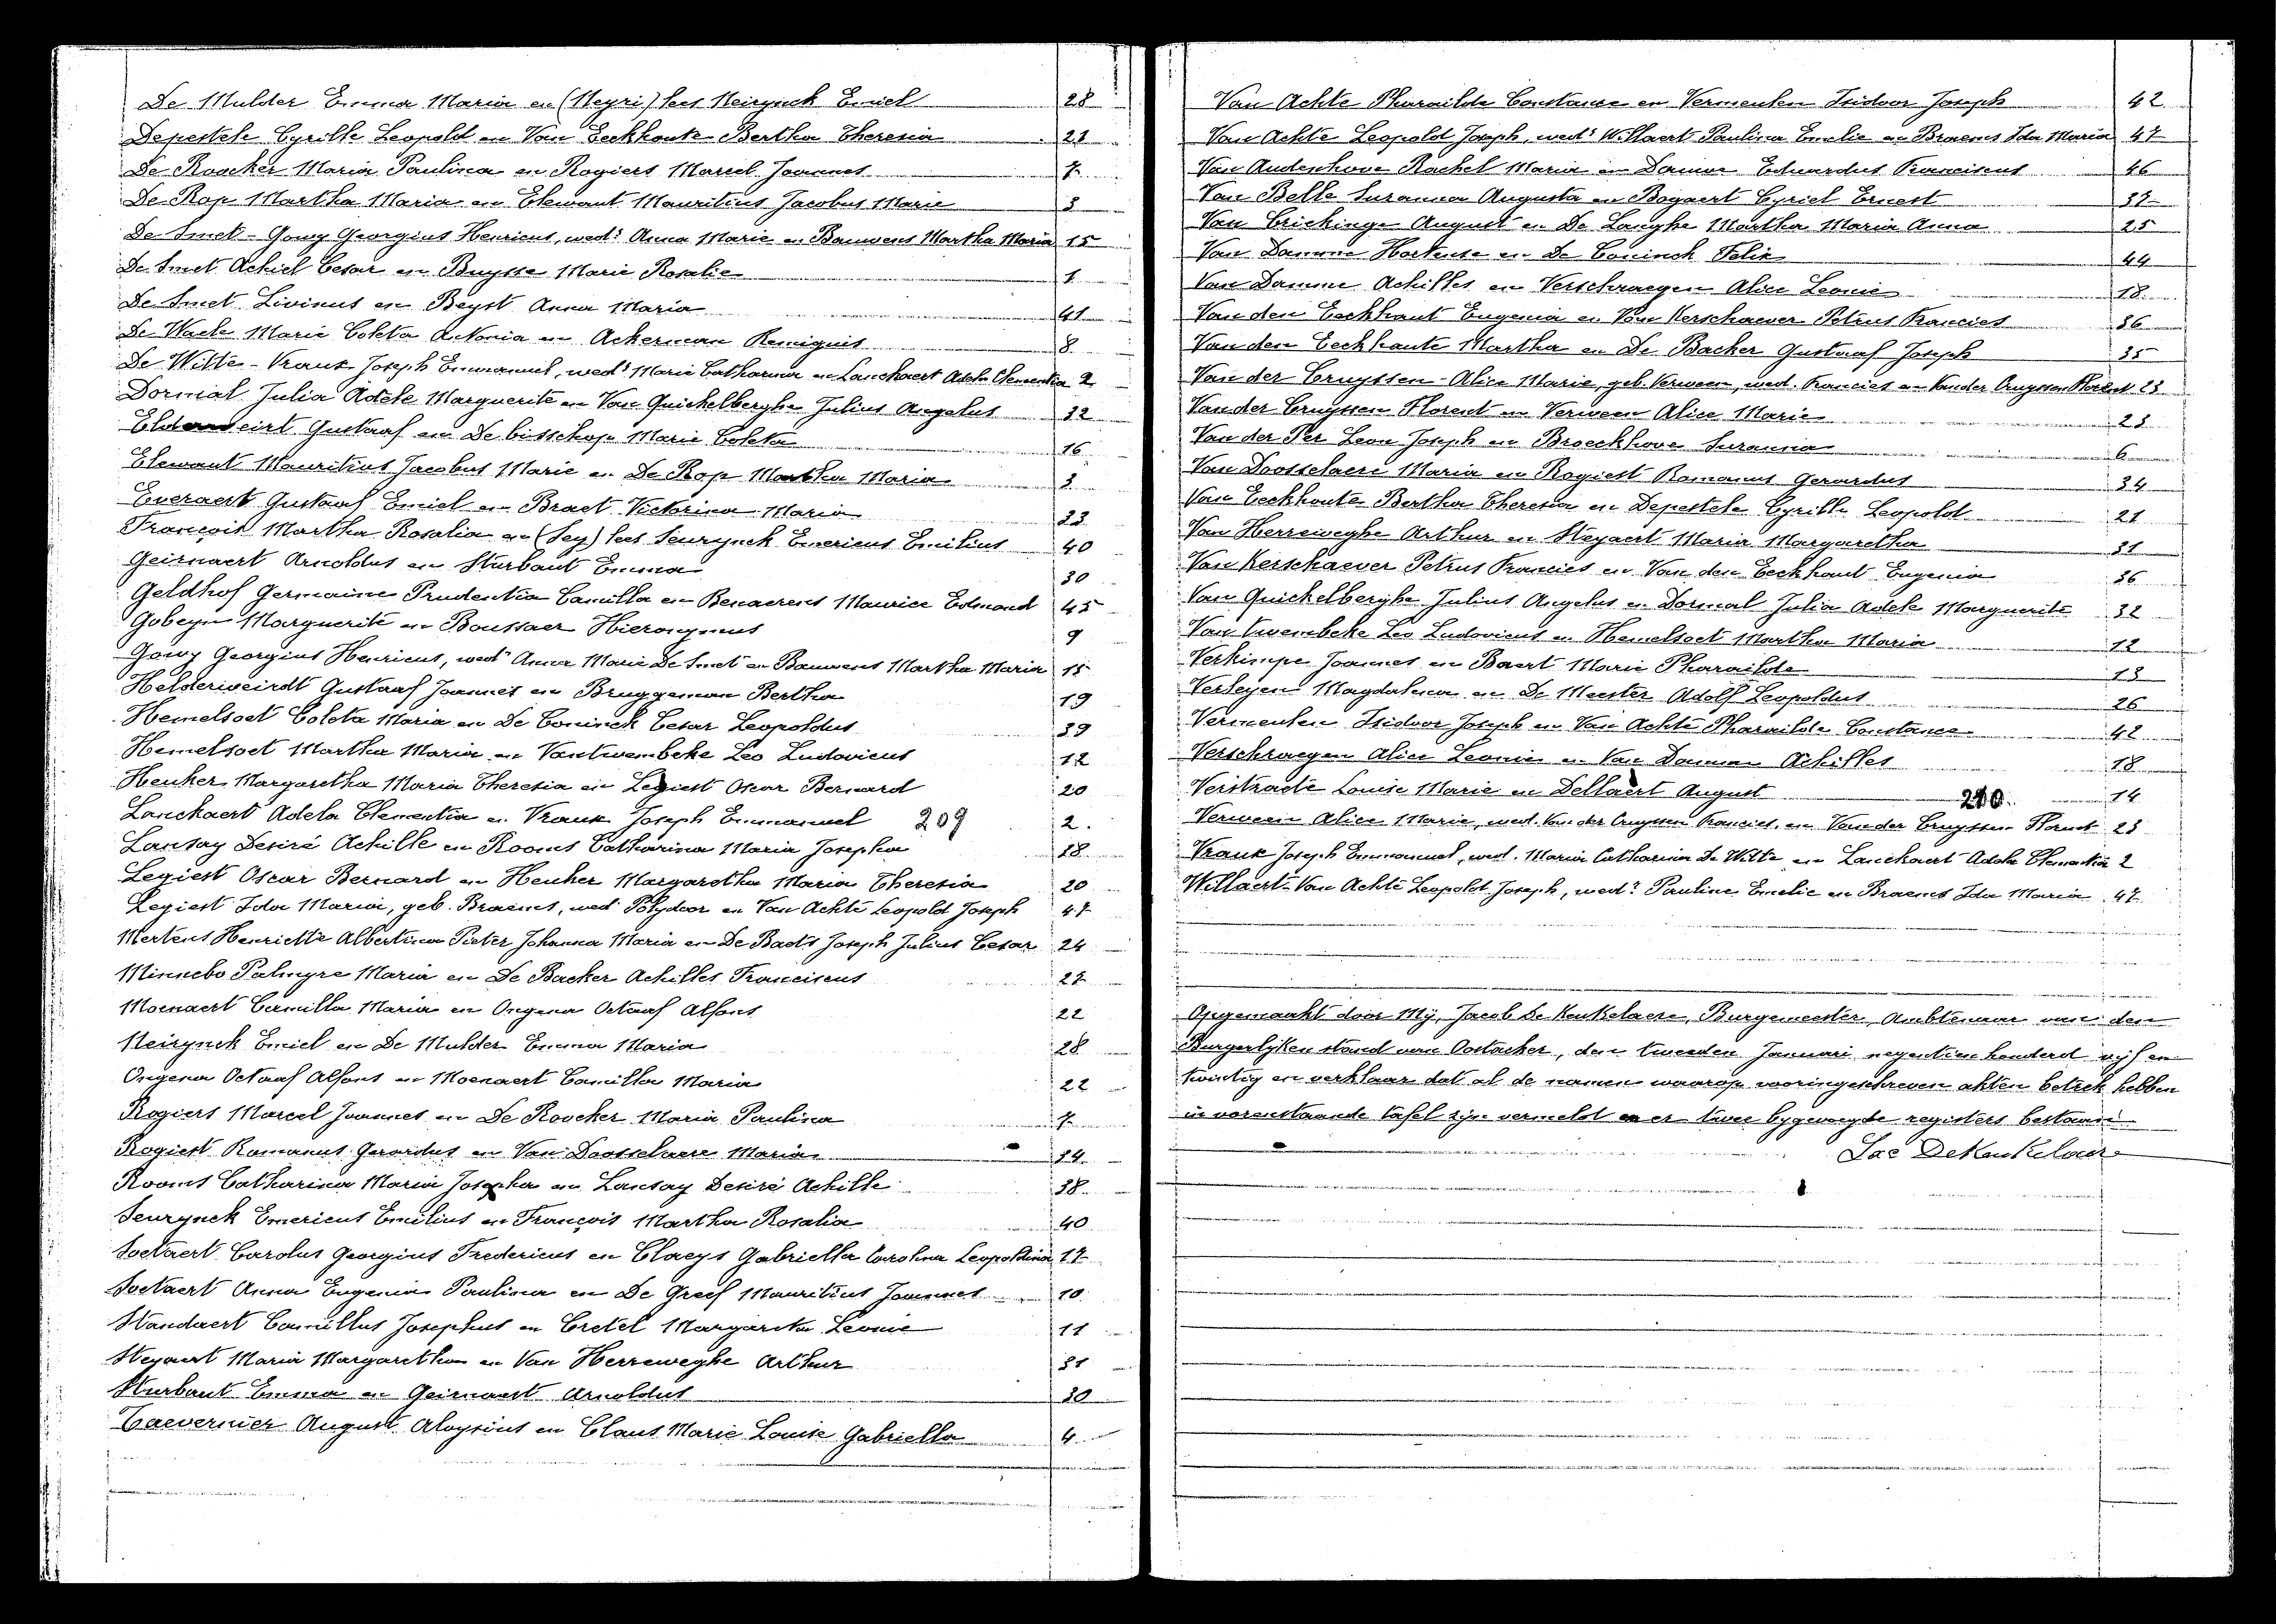 De Mulder Emma Maria en (Neyri) lees Neirynck Emiel 28
Depestele Cyrille Leopold en Van Eeckhoute Bertha Theresia 21
De Roocker Maria Paulina en Rogiers Marcel Joannes 7
De Rop Martha Maria en Elewaut Mauritius Jacobus Marie 3
De Smet - Gouy Georgius Henricus, wedr Anna Marie en Bauwens Martha Maria 15
De Smet Achiel Cesar en Buysse Marie Rosalie 1
De Smet Livinus en Beyst Anna Maria 41
De Waele Marie Coleta Antonia en Ackerman Remigius 8
De Witte - Vrank Joseph Emmanuel, wedr Marie Catharina en Lanckaert Adela Clementia 2
Dormal Julia Adele Marguerite en Van Quickelberghe Julius Angelus 32
Gustaaf en De bisschop Marie Coleta 16
Elewaut Mauritius Jacobus Marie en De Rop Martha Maria 3
Everaert Gustaaf Emiel en Braet Victorina Maria 23
François Martha Rosalia en (Sey) lees Seurynck Emericus Emilius 40
Geirnaert Arnoldus en Sturbaut Emma 30
Geldhof Germaine Prudentia Camilla en Benaerens Maurice Edmond 45
Gobeyn Marguerite en Boussaer Hieronymus 9
Gouy Georgius Henricus, wedr Anna Marie De Smet en Bauwens Martha Maria 15
Helderweirdt Gustaaf Joannes en Bruggeman Bertha 19
Hemelsoet Coleta Maria en De Coninck Cesar Leopoldus 39
Hemelsoet Martha Maria en Vantwembeke Leo Ludovicus 12
Heuker Margaretha Maria Theresia en Legiest Oscar Bernard 20
Lanckaert Adela Clementia en Vrank Joseph Emmanuel 209 2.
Lansay Desiré Achille en Rooms Catharina Maria Josepha 38
Legiest Oscar Bernard en Heuker Margaretha Maria Theresia 20
Legiest Ida Maria, geb. Braems, wed Polydoor en Van Achte Leopold Joseph 47
Mertens Henriette Albertina Pieter Johanna Maria en De Baets Joseph Julius Cesar 24
Minnebo Palmyre Maria en De Backer Achilles Franciscus 27
Moenaert Camilla Maria en Ongena Octaaf Alfons 22
Neirynck Emiel en De Mulder Emma Maria 28
Ongena Octaaf Alfons en Moenaert Camilla Maria 22
Rogiers Marcel Joannes en De Roocker Maria Paulina 7
Rogiest Romanus Gerardus en Van Doosselaere Maria 34
Rooms Catharina Maria Josepha en Lansay Desiré Achille 38
Seurynck Emericus Emilius en François Martha Rosalia 40
Soetaert Carolus Georgius Fredericus en Claeys Gabriella Carolina Leopoldina 17
Soetaert Anna Eugenia Paulina en De Greef Mauritius Joannes 10
Standaert Camillus Josephus en Cretel Margarita Leonie 11
Steyaert Maria Margaretha en Van Herreweghe Arthur 31
Sturbaut Emma en Geirnaert Arnoldus 30
Taevernier August Aloysius en Claus Marie Louise Gabriella 4
Van Achte Pharailde Constance en Vermeulen Isidoor Joseph 42
Van Achte Leopold Joseph, wedr Willaert Paulina Emelie en Braems Ida Maria 47
Van Audenhove Rachel Maria en Eduardus Franciscus 46
Van Belle Suzanna Augusta en Bogaert Cyriel Ernest 37
Van Crickinge August en De Langhe Martha Maria Anna 25
Van Damme Hortense en De Coninck Felix 44
Van Damme Achilles en Verschraegen Alice Leonie 18
Van den Eeckhaut Eugenia en Van Kerschaever Petrus Francies 36
Van den Eeckhaute Martha en De Backer Gustaaf Joseph 35
Van der Cruyssen - Alice Marie, geb. Verween, wed. Francies en Vander Cruyssen Florent 23
Vander Cruyssen Florent en Verween Alice Marie 23
Van der Per Leon Joseph en Broeckhove Suzanna 6
Van Doosselaere Maria en Rogiest Romanus Gerardus 34
Van Eeckhoute Bertha Theresia en Depestele Cyrille Leopold 21
Van Herreweghe Arthur en Steyaert Maria Margaretha 31
Van Kerschaever Petrus Francies en Van den Eeckhaut Eugenia 36
Van Quickelberghe Julius Angelus en Dormal Julia Adele Marguerite 32
Van twembeke Leo Ludovicus en Hemelsoet Martha Maria 12
Verkimpe Joannes en Baert Marie Pharailde 13
Verleyen Magdalena en De Meester Adolf Leopoldus 26
Vermeulen Isidoor Joseph en Van Achte Pharailde Constance 42
Verschraegen Alice Leonie en Van Damme Achilles 18
Verstraete Louise Marie en Dellaert August 210. 14
Verween Alice Marie, wed. Van der Cruyssen Francies, en Vander Cruyssen Florent 23
Vrank Joseph Emmanuel, wed. Maria Catharina De Witte en Lanckaert Adela Clementia 2
Willaert - Van Achte Leopold Joseph, wedr Pauline Emelie en Braems Ida Maria 47
Opgemaakt door Mij, Jacob De Keukelaere, Burgemeester, Ambtenaar van den
Burgerlijken stand van Oostacker, den tweeden Januari negentien honderd vijf en
twintig en verklaar dat al de namen waarop weringeschreven akten betrek hebben
in vorenstaande tafel zijn vermeld en er twee bygevoegde registers bestaan.
Jac DeKeukelaere